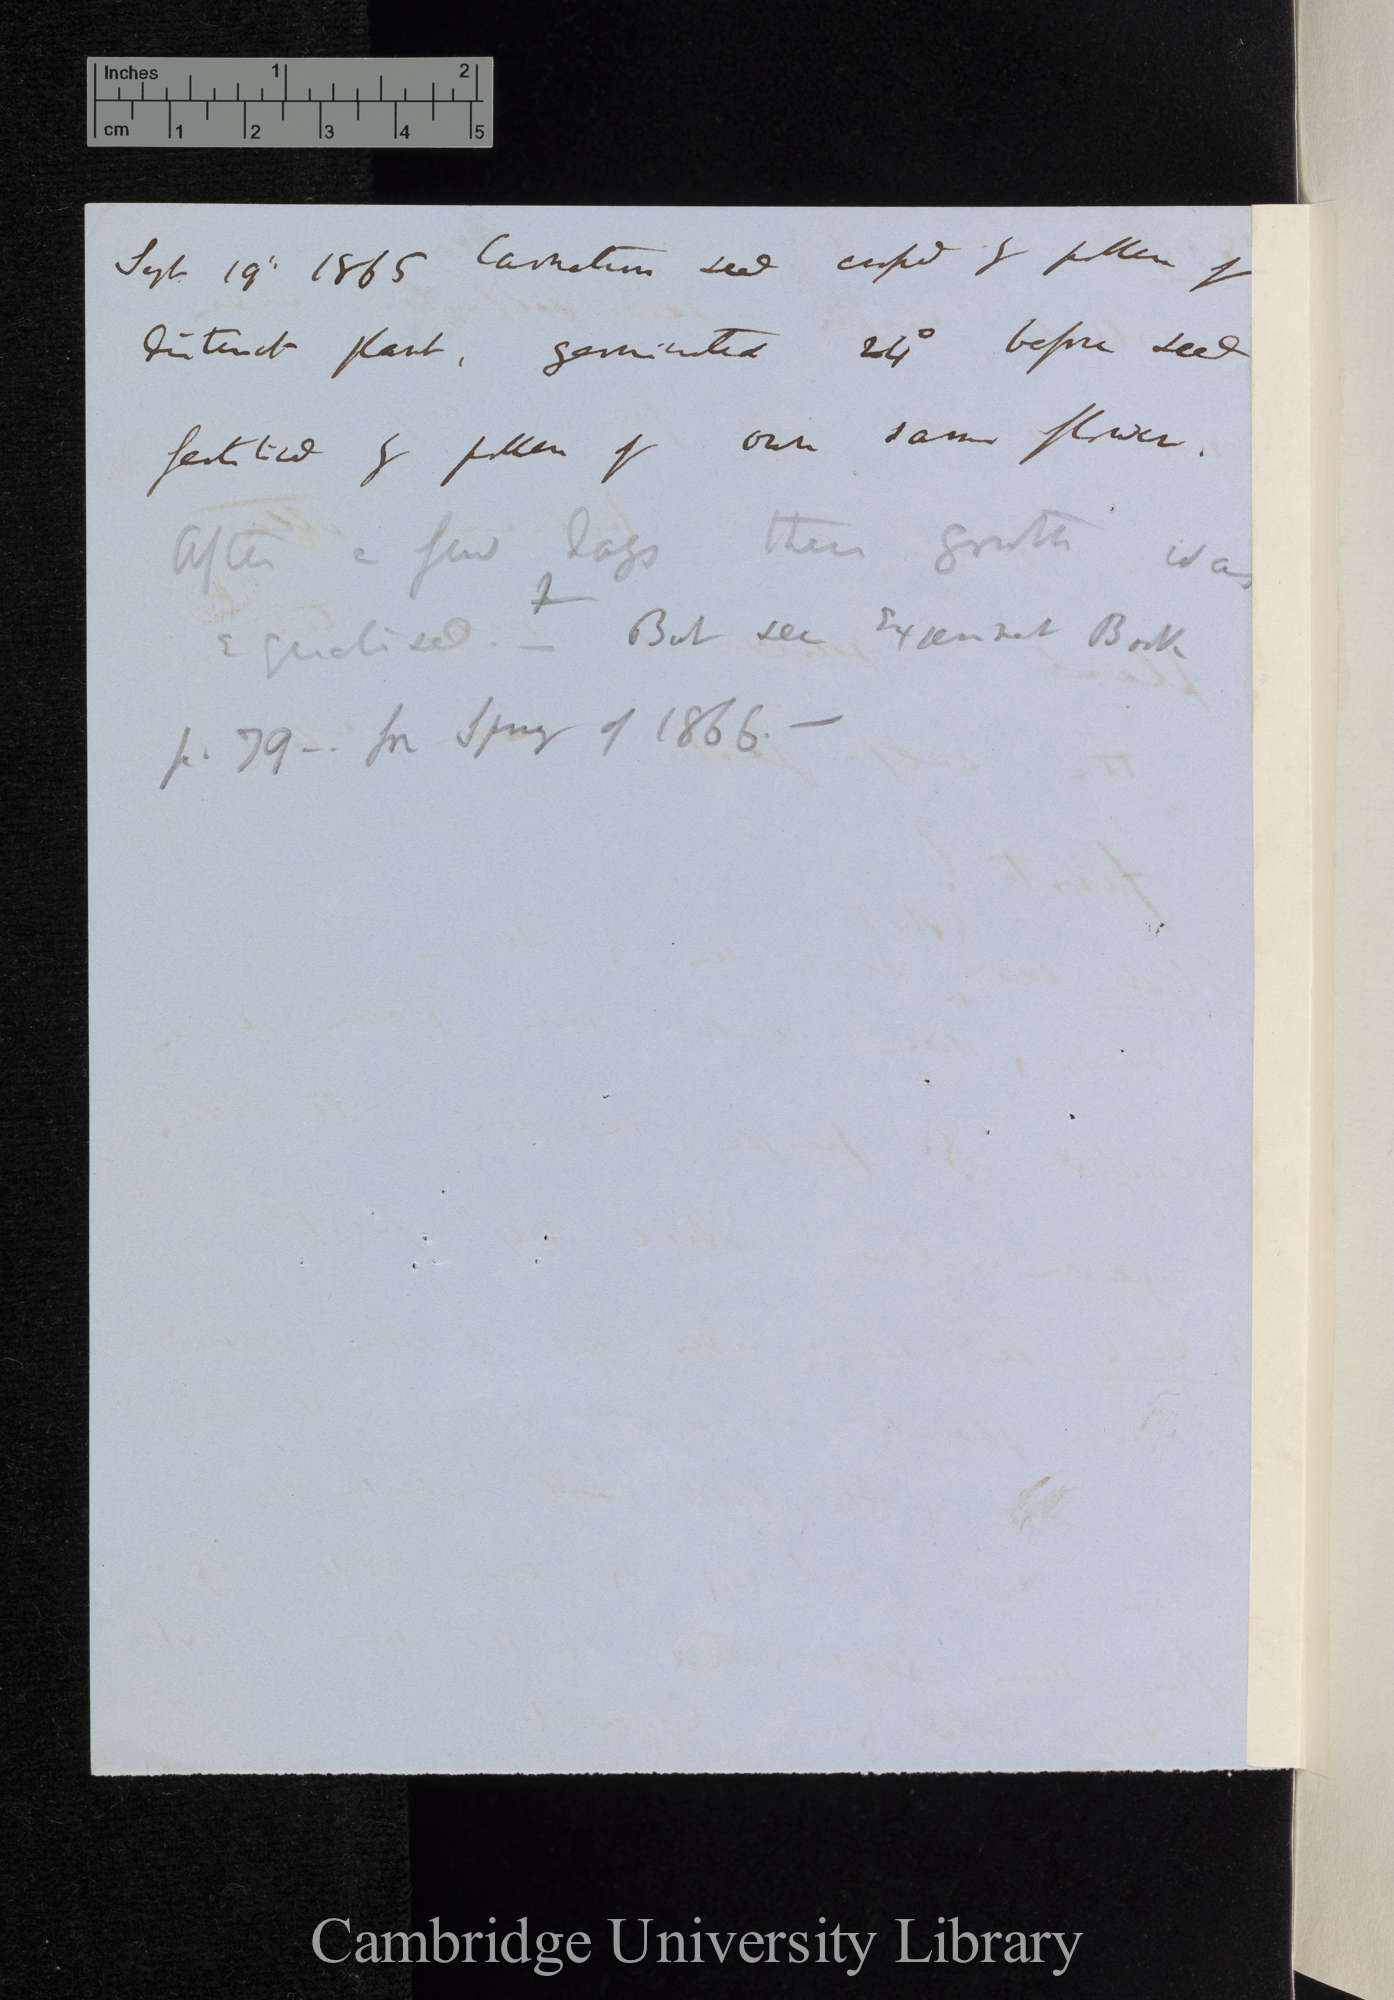 Inches 1 2
cm 1 2 3 4 5
Sept. 19' 1865 Carnation seed crossed by pollen of
distinct plant, germinated 24° before seed
fertilised by pollen of own same flower.
After a few days their growth was
equalised. — But see Experiment Book
p. 79 —. for Spring of 1866. —
Cambridge University Library